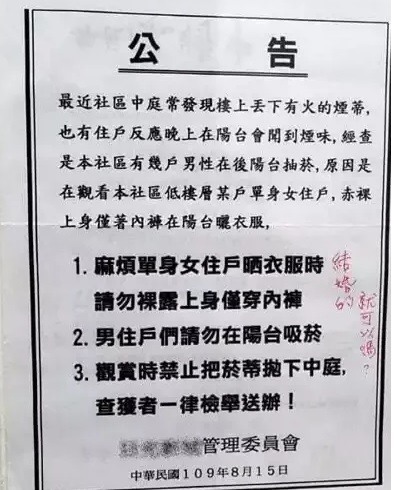 公告
最近社區中庭常發現樓上丟下有火的煙蒂,
也有住戶反應晚上在陽台會聞到煙味,經查
是本社區有幾戶男性在後陽台抽菸,原因是
在觀看本社區低樓層某戶單身女住戶,赤裸
上身僅著內褲在陽台曬衣服,
1. 麻煩單身女住戶晒衣服時
請勿裸露上身僅穿內褲
2. 男住戶們請勿在陽台吸菸
3. 觀賞時禁止把菸蒂拋下中庭,
查獲者一律檢舉送辦!
結婚的
就可以嗎?
管理委員會
中華民國109年8月15日